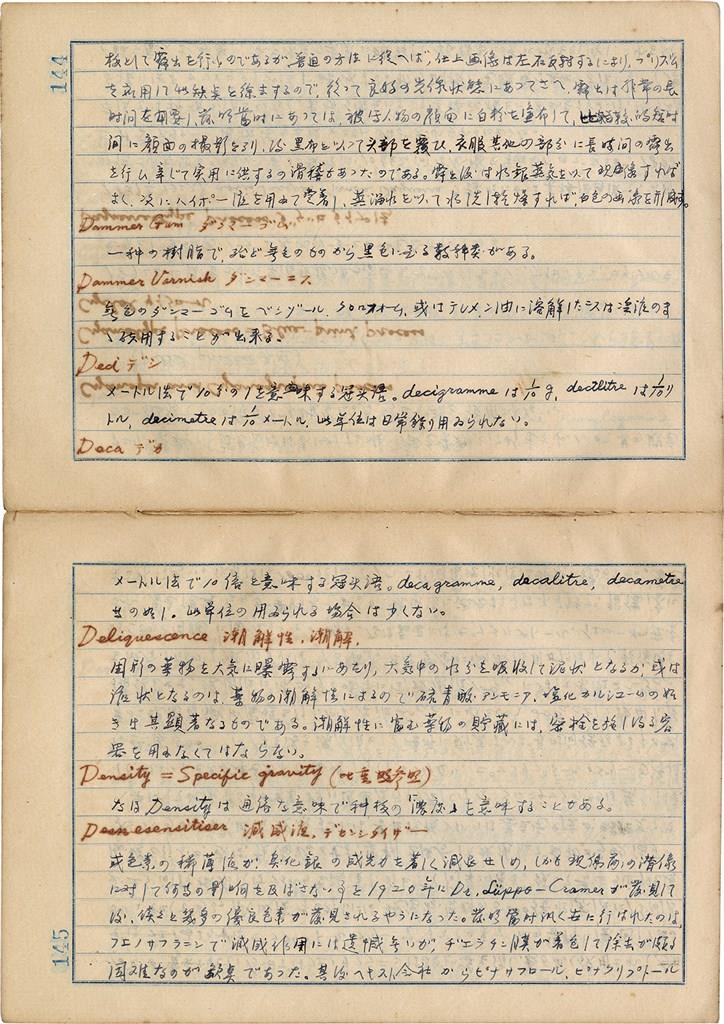 144
板として露出を行うのであるが普通の方法に従へば,仕上画像は左右反対するにより,プリズム
を応用して此缺点を除去するので,従って良好の光線状態にあってさへ,露出は非常の長
时间を要し,発明當时にあっては,被写人物の顔面に白粉を塗布して,時
间に顔面の撮影を了り,後黒布を以って头部を覆ひ,衣服其他の部分に長时间の露出
を行ふ辛じて実用に供するの滑稽もあったのである。露出後は水銀蒸気を以て現像すれば
よく,次にハイポー液を用ゐて定着し,蒸溜水を以て水洗し乾燥すれば,白色の画像を
Dammar Gum ダンマーゴム
一种の樹脂で,殆ど無色のものから黒色に至る数种类がある。
Dammer Varnish ダンマーニス
無色のダンマーゴムをベンヅール,クロロホルム,或はテレメン油に溶解したニスは
使用することが出来る。
Deci デシ
メートル法で10分の1を意味する冠头语。decigramme は 1/10 g, decilitre は 1/10 リ
トル, decimetre は 1/10 メートル,此単位は日常餘り用ゐられない。
Deca デカ
メートル法で10倍を意味する冠头语。decagramme, decalitre, decametre
等の如し。此単位の用ゐられる場合は少くない。
Deliquescence 潮解性,潮解.
固形の薬物を大気に曝露するにあたり,大気中の水分を吸收して泥状となるか,或は
液状となるのは,薬物の潮解性によるので硫青酸アンモニア,塩化カルシュームの如
きは其顕著なるものである。潮解性に富む薬物の貯蔵には,密栓を施し得る容
器を用ゐなくてはならない。
Density = Specific gravity (比重照参照)
なほ Density は通俗な意味で种板の「濃度」を意味することがある。
Desnesensitiser 減感液,デセンシタイザー
或色素の稀薄液が,臭化銀の感光力を著しく減退せしめ,しかも現像前の潜像
に対して何等の影响を及ぼさない事を1920年に Dr. Lüppo-Cramer が発見して
以後,続々と幾多の優良色素が発見されるやうになった。発明當时汎く世に行はれたのは,
フェノサフラニンで減感作用には遺憾無いが,ヂェラチン膜が着色して除去が頗る
困難なのが缺点であった。其後ヘキスト会社からピナサフロール,ピナクリプトール
145